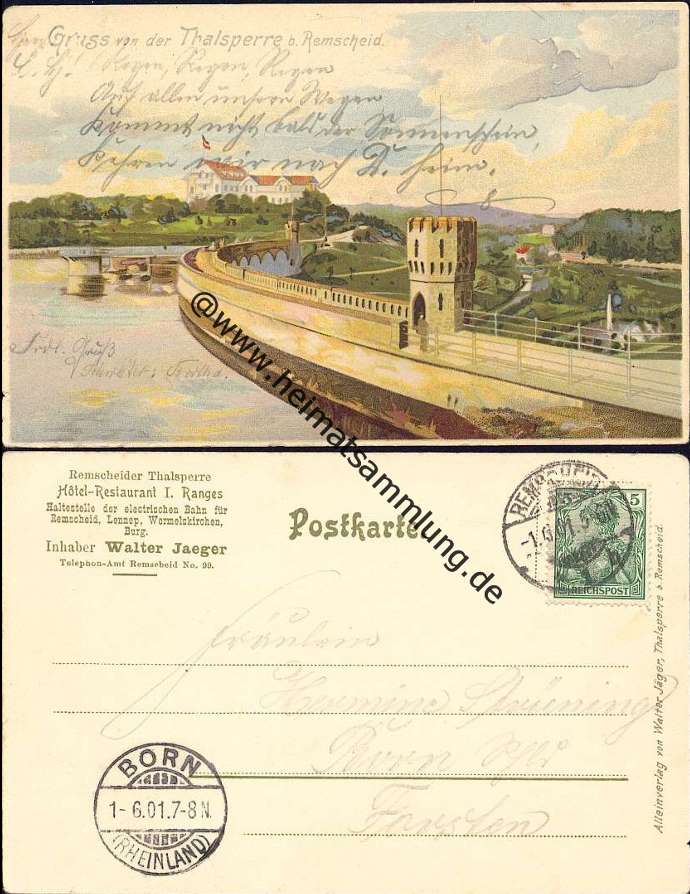 Gruss von der Thalsperre b. Remscheid.
L. H.! Regen, Regen, Regen
Auf allen unsern Wegen
Kommt nicht bald der Sonnenschein,
Kehren wir nach D. heim.
Frdl. Gruß
@www.heimatsammlung.de
Remscheider Thalsperre
Hôtel-Restaurant I. Ranges
Haltestelle der electrischen Bahn für
Remscheid, Lennep, Wermelskirchen,
Burg.
Inhaber Walter Jaeger
Telephon-Amt Remscheid No. 99.
Postkarte
REMSCHEID
5
REICHSPOST
Fräulein
Hermine
Born
BORN
1-6.01.7-8N.
(RHEINLAND)
Alleinverlag von Walter Jäger, Thalsperre b. Remscheid.